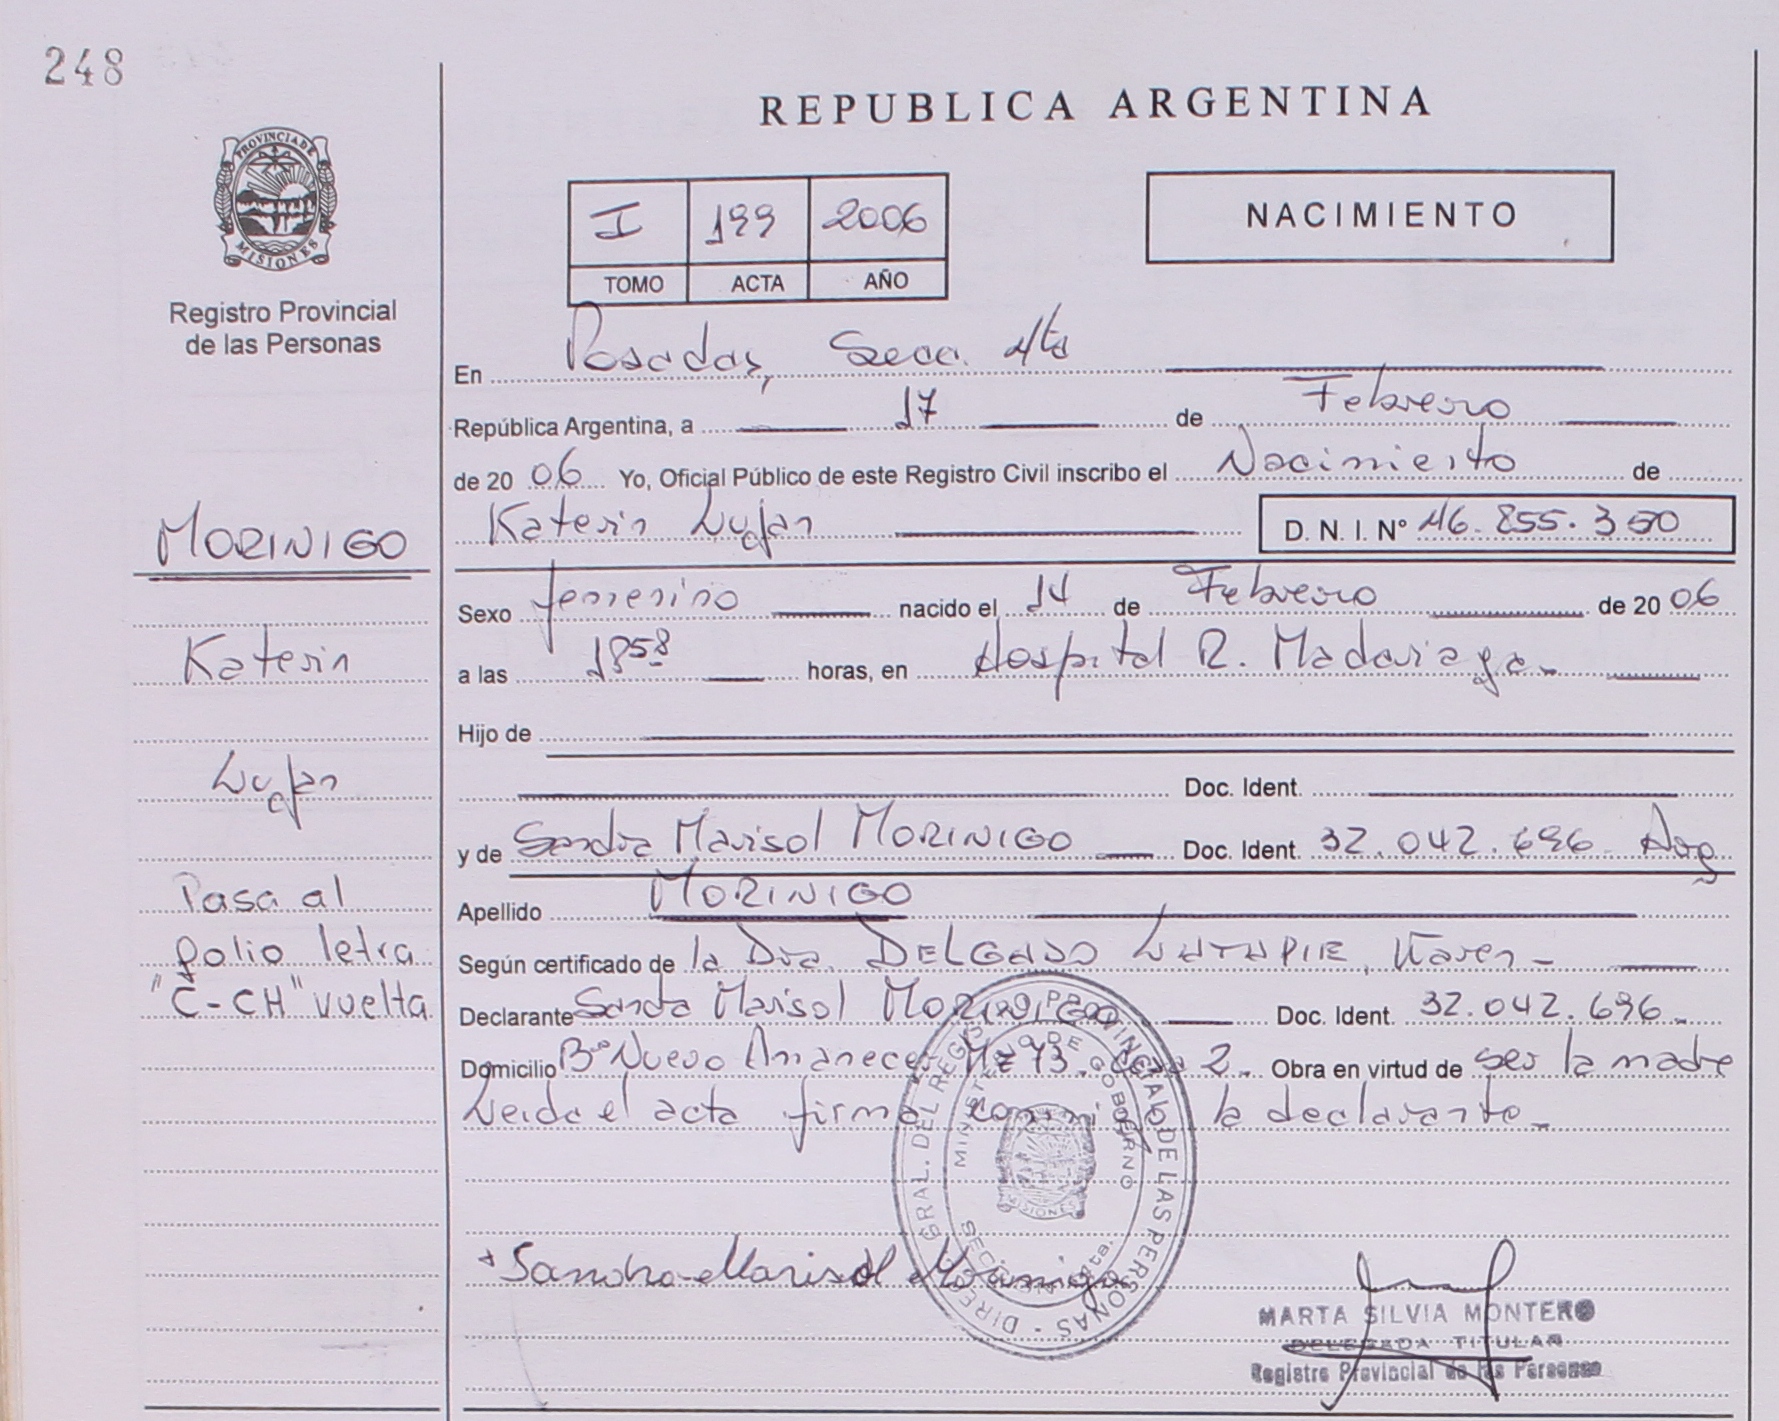 248
REPUBLICA ARGENTINA
PROVINCIA DE MISIONES
Registro Provincial
de las Personas
I 199 2006
TOMO ACTA AÑO
NACIMIENTO
En Posadas, Secc. 4ta
República Argentina, a 17 de Febrero
de 20 06 Yo, Oficial Público de este Registro Civil inscribo el Nacimiento de
Katerin Lujan D. N. I. Nº 46.855.350
Sexo femenino nacido el 14 de Febrero de 20 06
a las 18 58 horas, en Hospital R. Madariaga.-
Hijo de
Doc. Ident.
y de Sandra Marisol MORINIGO Doc. Ident. 32.042.696 Arg
Apellido MORINIGO
Según certificado de la Dra. DELGADO Karen -
Declarante Sandra Marisol MORINIGO Doc. Ident. 32.042.696.-
Domicilio Bº Nuevo Amanecer Mz 73. casa 2. Obra en virtud de ser la madre
Leida el acta firma conmigo la declarante.-
MORINIGO
Katerin
Lujan
Pasa al
folio letra
"C-CH" vuelta
Sandra Marisol Morinigo
DIREC. GRAL. DEL REGIS. PROVINCIAL DE LAS PERSONAS -
MINISTERIO DE GOBIERNO
MISIONES
MARTA SILVIA MONTERO
DELEGADA TITULAR
Registro Provincial de las Personas